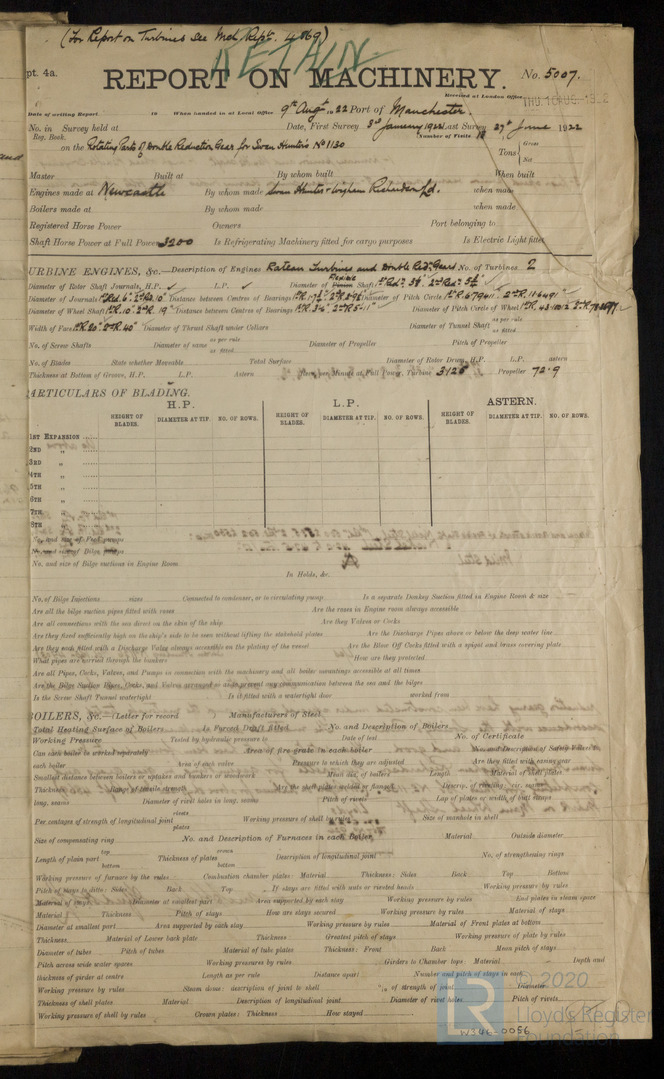 (For Report on Turbines see Mcl. Rept. 4069)
RETAIN
pt. 4a.
REPORT ON MACHINERY.
No. 5007.
Received at London Office
Date of writing Report 19 When handed in at Local Office 9th Augt. 22 Port of Manchester.
No. in Survey held at Date, First Survey 3rd January 1922 Last Survey 27th June 1922
Reg. Book. Number of Visits 18
on the Rotating Parts of Double Reduction Gear for Swan Hunter's No 1130
Tons Gross Net
Master Built at By whom built When built
Engines made at Newcastle By whom made Swan Hunter Wigham Richardson Ld. when made
Boilers made at By whom made when made
Registered Horse Power Owners Port belonging to
Shaft Horse Power at Full Power 3200 Is Refrigerating Machinery fitted for cargo purposes Is Electric Light fitted
URBINE ENGINES, &c.—Description of Engines Rateau Turbines and Double Redn. Gears No. of Turbines 2
Diameter of Rotor Shaft Journals, H.P. L.P. Diameter of Pinion Shaft
Diameter of Journals Distance between Centres of Bearings Diameter of Pitch Circle
Diameter of Wheel Shaft Distance between Centres of Bearings Diameter of Pitch Circle of Wheel
Width of Face Diameter of Thrust Shaft under Collars Diameter of Tunnel Shaft as per rule as fitted
No. of Screw Shafts Diameter of same as per rule as fitted Diameter of Propeller Pitch of Propeller
No. of Blades State whether Moveable Total Surface Diameter of Rotor Drum, H.P. L.P. astern
Thickness at Bottom of Groove, H.P. L.P. Astern Revs. per Minute at Full Power, Turbine 3125 Propeller 72.9
ARTICULARS OF BLADING.
H.P. L.P. ASTERN.
HEIGHT OF BLADES. DIAMETER AT TIP. NO. OF ROWS. HEIGHT OF BLADES. DIAMETER AT TIP. NO. OF ROWS. HEIGHT OF BLADES. DIAMETER AT TIP. NO. OF ROWS.
1ST EXPANSION
2ND "
3RD "
4TH "
5TH "
6TH "
7TH "
8TH "
No. and size of Feed pumps
No. and size of Bilge pumps
No. and size of Bilge suctions in Engine Room
In Holds, &c.
No. of Bilge Injections sizes Connected to condenser, or to circulating pump Is a separate Donkey Suction fitted in Engine Room & size
Are all the bilge suction pipes fitted with roses Are the roses in Engine room always accessible
Are all connections with the sea direct on the skin of the ship Are they Valves or Cocks
Are they fixed sufficiently high on the ship's side to be seen without lifting the stokehold plates Are the Discharge Pipes above or below the deep water line
Are they each fitted with a Discharge Valve always accessible on the plating of the vessel Are the Blow Off Cocks fitted with a spigot and brass covering plate
What pipes are carried through the bunkers How are they protected
Are all Pipes, Cocks, Valves, and Pumps in connection with the machinery and all boiler mountings accessible at all times
Are the Bilge Suction Pipes, Cocks, and Valves arranged so as to prevent any communication between the sea and the bilges
Is the Screw Shaft Tunnel watertight Is it fitted with a watertight door worked from
BOILERS, &c.—(Letter for record Manufacturers of Steel
Total Heating Surface of Boilers Is Forced Draft fitted No. and Description of Boilers
Working Pressure Tested by hydraulic pressure to Date of test No. of Certificate
Can each boiler be worked separately Area of fire grate in each boiler No. and Description of Safety Valves to
each boiler Area of each valve Pressure to which they are adjusted Are they fitted with easing gear
Smallest distance between boilers or uptakes and bunkers or woodwork Mean dia. of boilers Length Material of shell plates
Thickness Range of tensile strength Are the shell plates welded or flanged Descrip. of riveting: cir. seams
long. seams Diameter of rivet holes in long. seams Pitch of rivets Lap of plates or width of butt straps
Per centages of strength of longitudinal joint rivets plates Working pressure of shell by rules Size of manhole in shell
Size of compensating ring No. and Description of Furnaces in each Boiler Material Outside diameter
Length of plain part top bottom Thickness of plates crown bottom Description of longitudinal joint No. of strengthening rings
Working pressure of furnace by the rules Combustion chamber plates: Material Thickness: Sides Back Top Bottom
Pitch of stays to ditto: Sides Back Top If stays are fitted with nuts or riveted heads Working pressure by rules
Material of stays Diameter at smallest part Area supported by each stay Working pressure by rules End plates in steam space
Material Thickness Pitch of stays How are stays secured Working pressure by rules Material of stays
Diameter at smallest part Area supported by each stay Working pressure by rules Material of Front plates at bottom
Thickness Material of Lower back plate Thickness Greatest pitch of stays Working pressure of plate by rules
Diameter of tubes Pitch of tubes Material of tube plates Thickness: Front Back Mean pitch of stays
Pitch across wide water spaces Working pressures by rules Girders to Chamber tops: Material Depth and
thickness of girder at centre Length as per rule Distance apart Number and pitch of stays in each
Working pressure by rules Steam dome: description of joint to shell % of strength of joint Diameter
Thickness of shell plates Material Description of longitudinal joint Diameter of rivet holes Pitch of rivets
Working pressure of shell by rules Crown plates: Thickness How stayed
© 2020
Lloyd's Register
Foundation
W346-0056